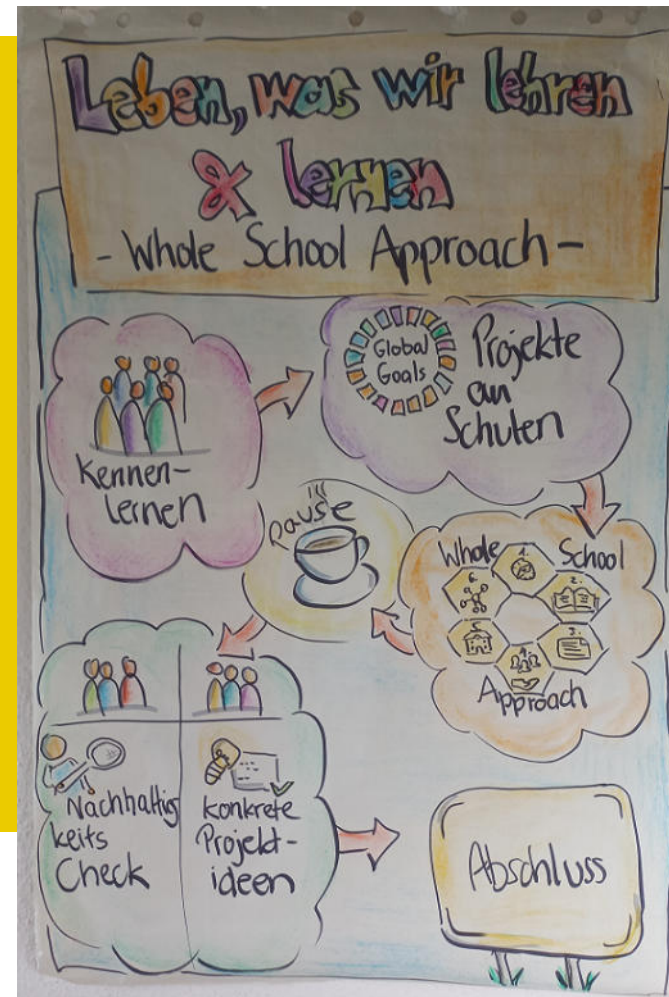 Leben, was wir lehren
& lernen
- Whole School Approach -
Kennen-
lernen
Global
Goals
Projekte
an
Schulen
Whole School
1.
2.
3.
4.
5.
6.
Approach
Pause
Nachhaltig
keits
Check
konkrete
Projekt-
ideen
Abschluss